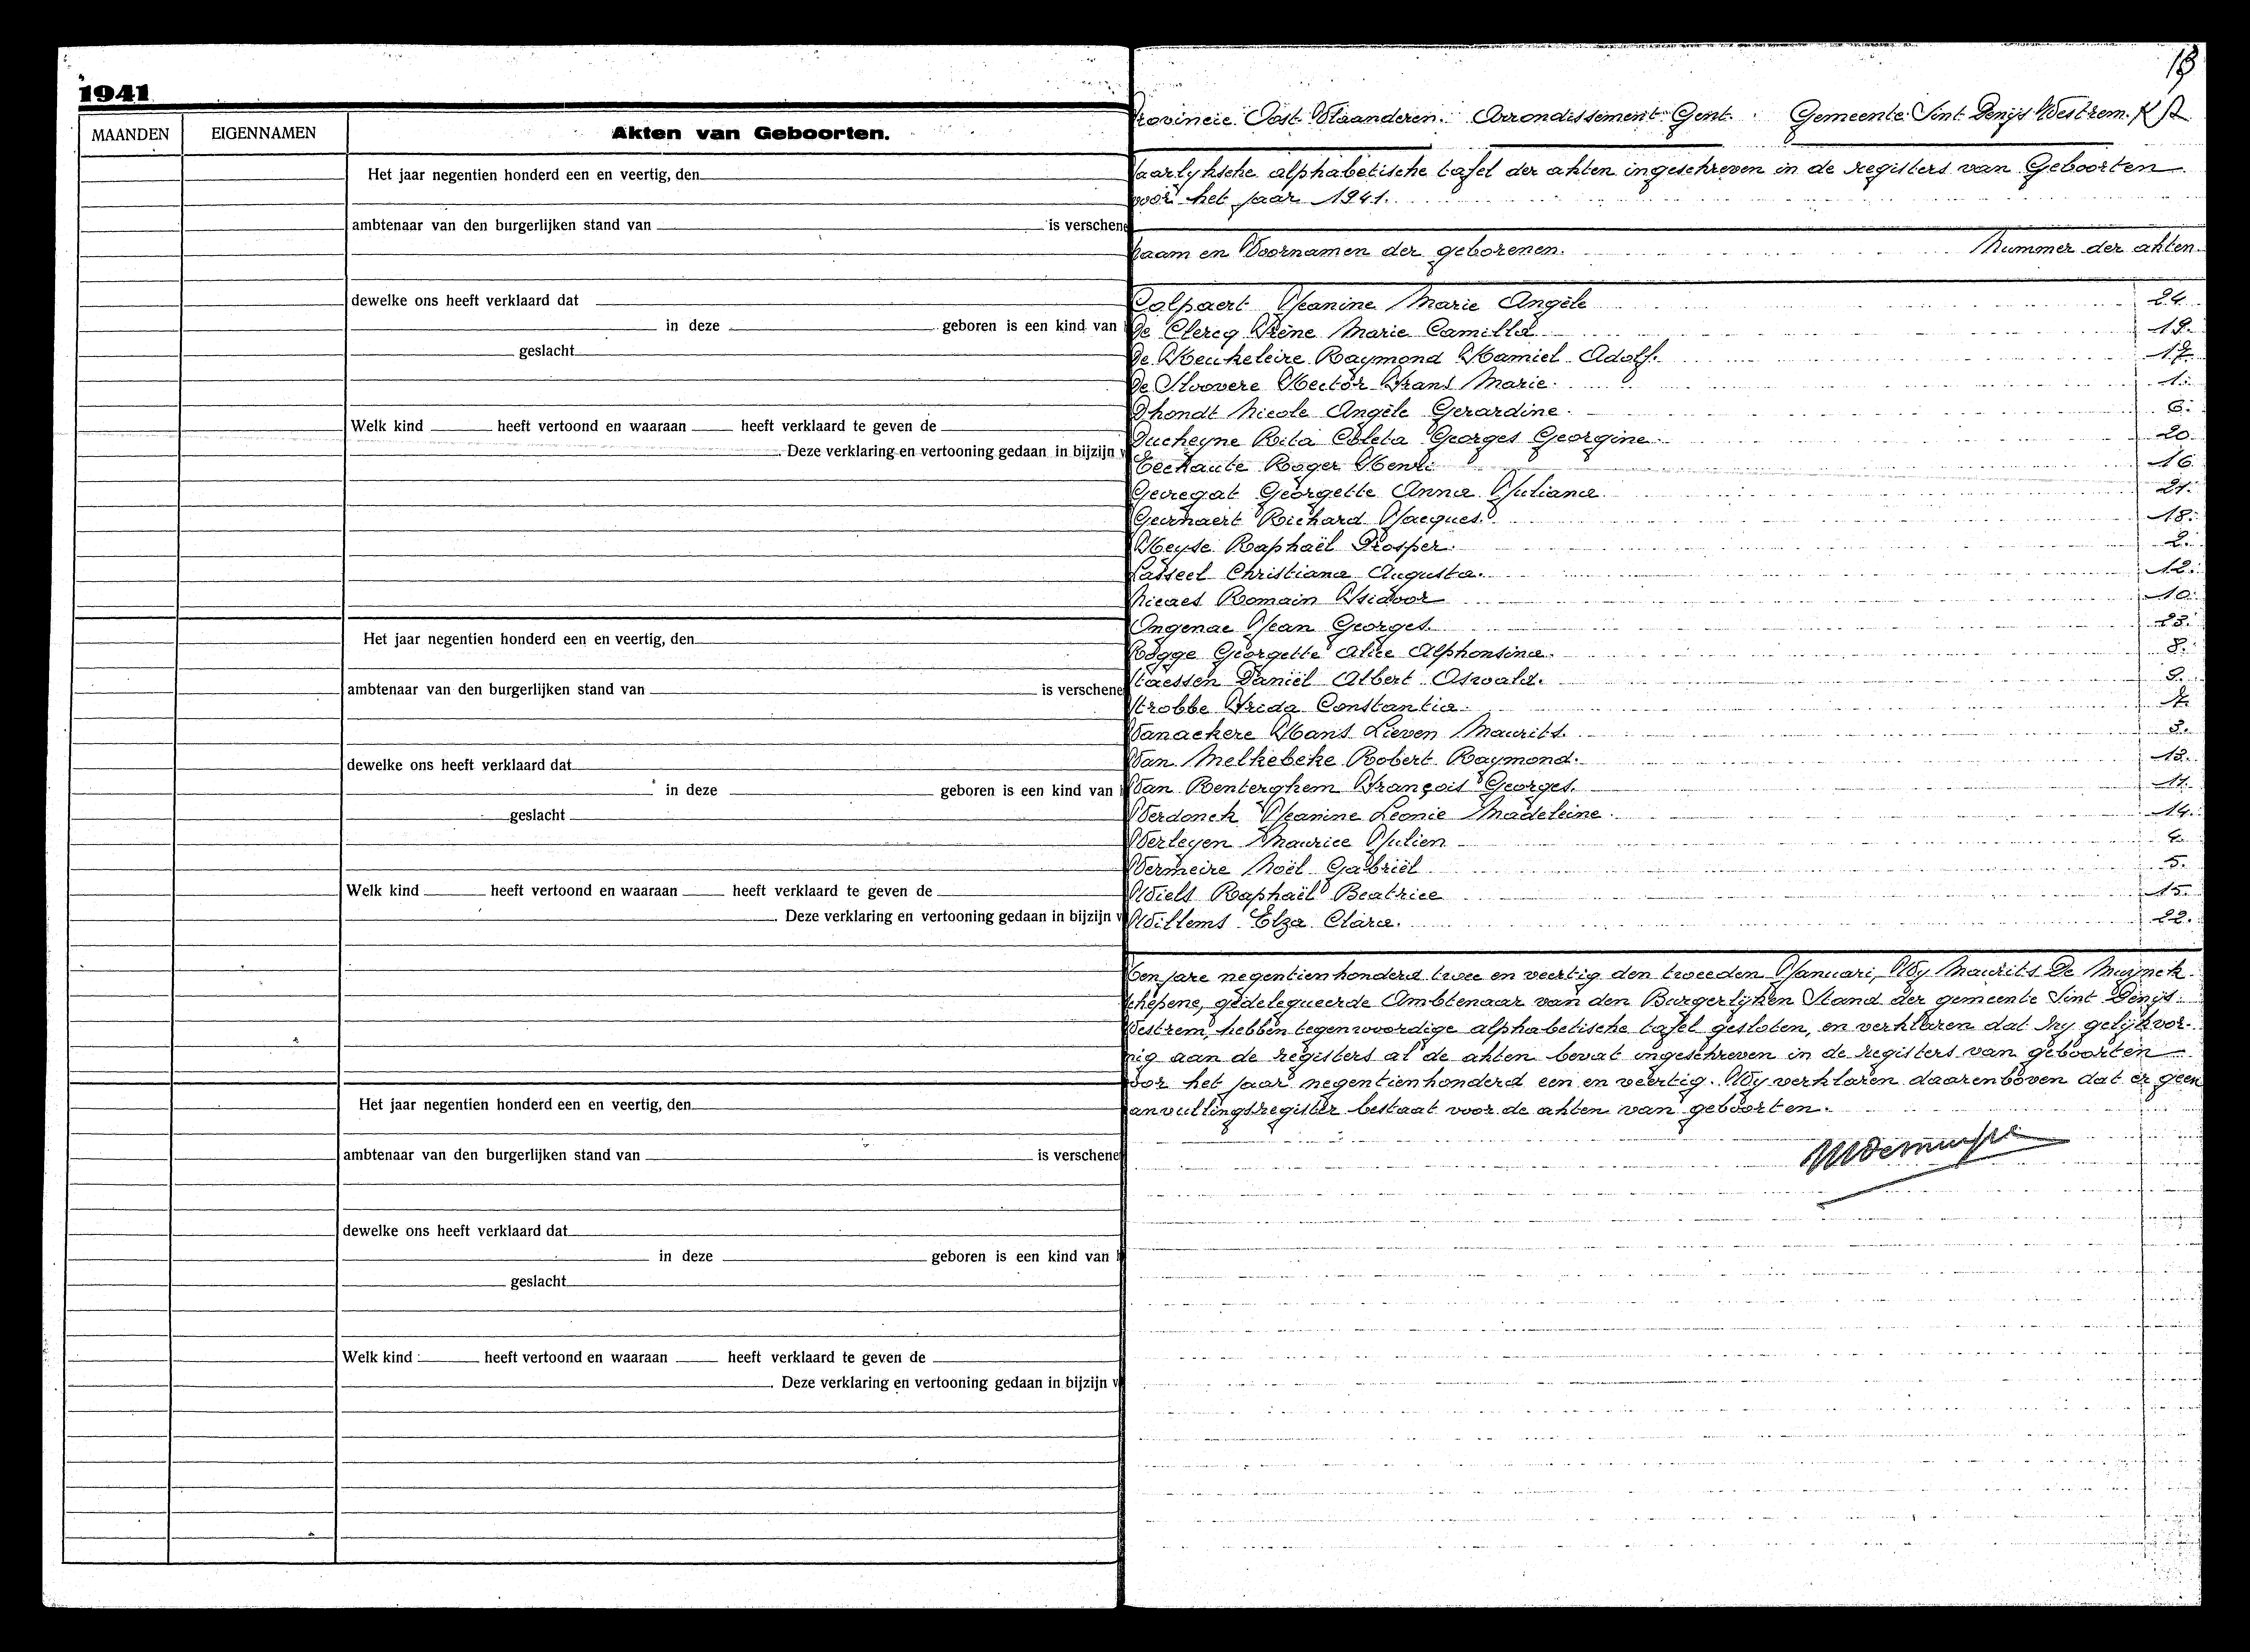 1941
MAANDEN EIGENNAMEN Akten van Geboorten.
Het jaar negentien honderd een en veertig, den
ambtenaar van den burgerlijken stand van is verschene
dewelke ons heeft verklaard dat
in deze geboren is een kind van
geslacht
Welk kind heeft vertoond en waaraan heeft verklaard te geven de
Deze verklaring en vertooning gedaan in bijzijn v
Het jaar negentien honderd een en veertig, den
ambtenaar van den burgerlijken stand van is verschene
dewelke ons heeft verklaard dat
in deze geboren is een kind van
geslacht
Welk kind heeft vertoond en waaraan heeft verklaard te geven de
Deze verklaring en vertooning gedaan in bijzijn v
Het jaar negentien honderd een en veertig, den
ambtenaar van den burgerlijken stand van is verschene
dewelke ons heeft verklaard dat
in deze geboren is een kind van
geslacht
Welk kind heeft vertoond en waaraan heeft verklaard te geven de
Deze verklaring en vertooning gedaan in bijzijn v
Provincie Oost Vlaanderen. Arrondissement Gent. Gemeente Sint Denijs Westrem.
Jaarlyksche alphabetische tafel der akten ingeschreven in de registers van Geboorten
voor het jaar 1941.
Naam en Voornamen der geborenen. Nummer der akten.
Colpaert Jeanine Marie Angèle 24.
De Clercq Irène Marie Camilla 19.
De Keukeleire Raymond Kamiel Adolf. 17.
De Stoovere Hector Frans Marie. 1.
Dhondt Nicole Angèle Gerardine. 6.
Ducheyne Rita Coleta Georges Georgine. 20.
Eeckaute Roger Henri 16.
Gevegat Georgette Anna Juliana 21.
Geirnaert Richard Jacques. 18.
Heyse Raphaël Prosper. 2.
Lasseel Christiana Augusta. 12.
Nicaes Romain Isidoor 10.
Ongenae Jean Georges. 23.
Rogge Georgette Alice Alphonsina. 8.
Staessen Daniël Albert Oswald. 9.
Strobbe Frida Constantia. 7.
Vanackere Hans Lieven Maurits. 3.
Van Melkebeke Robert Raymond. 13.
Van Renterghem François Georges. 11.
Verdonck Jeanine Leonie Madeleine. 14.
Verleyen Maurice Julien 4.
Vermeire Noël Gabriël 5.
Wiels Raphaël Beatrice 15.
Willems Elza Clara. 22.
Ten jare negentienhonderd twee en veertig den tweeden Januari, Wy Maurits De Muynck
schepene, gedelegueerde Ambtenaar van den Burgerlijken Stand der gemeente Sint Denijs
Westrem, hebben tegenwoordige alphabetische tafel gesloten, en verklaren dat hy gelijkvor-
mig aan de registers al de akten bevat ingeschreven in de registers van geboorten
voor het jaar negentienhonderd een en veertig. Wy verklaren daarenboven dat er geen
aanvullingsregister bestaat voor de akten van geboorten.